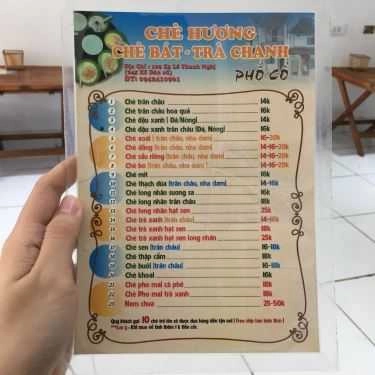 CHÈ HƯƠNG
CHÈ BÁT - TRÀ CHANH
PHỐ CỔ
Chè trân châu 14k
Chè trân châu hoa quả 16k
Chè đậu xanh [Đá/Nóng] 14k
Chè đậu xanh trân châu [Đá, Nóng] 16k
Chè xoài [trân châu, nha đam] 16-20k
Chè dằng [trân châu, nha đam] 14-16-20k
Chè sầu riêng [trân châu, nha đam] 14-16-20k
Chè bơ [trân châu, nha đam] 14-16-20k
Chè mít 16k
Chè thạch dừa [trân châu, nha đam] 14-16k
Chè long nhãn sương sa 16k
Chè long nhãn trân châu 18k
Chè long nhãn hạt sen 25k
Chè trà xanh [trân châu] 14-16k
Chè trà xanh hạt sen 18k
Chè trà xanh hạt sen long nhãn 25k
Chè sen [trân châu] 16-18k
Chè thập cẩm 18k
Chè bưởi [trân châu] 16-18k
Chè khoai 16k
Chè pho mai cà phê 18k
Chè Pho mai trà xanh 18k
Nem chua 25-50k
Quý khách gọi 10 chè trở lên sẽ được đưa hàng đến tận nơi